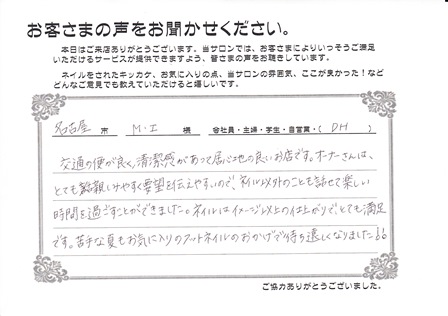 お客さまの声をお聞かせください。
本日はご来店ありがとうございます。当サロンでは、お客さまによりいっそうご満足
いただけるサービスが提供できますよう、皆さまの声をお聴きしています。
ネイルをされたキッカケ、お気に入りの点、当サロンの雰囲気、ここが良かった!など
どんなご意見でも教えていただけると嬉しいです。
名古屋 市 M・I 様 会社員・主婦・学生・自営業・( DH )
交通の便が良く、清潔感があって居心地の良いお店です。オーナーさんは、
とても親しみやすく要望を伝えやすいので、ネイル以外のことも話せて楽しい
時間を過ごすことができました。ネイルはイメージ以上の仕上がりでとても満足
です。苦手な夏もお気に入りのフットネイルのおかげで待ち遠しくなりました!!
ご協力ありがとうございました。